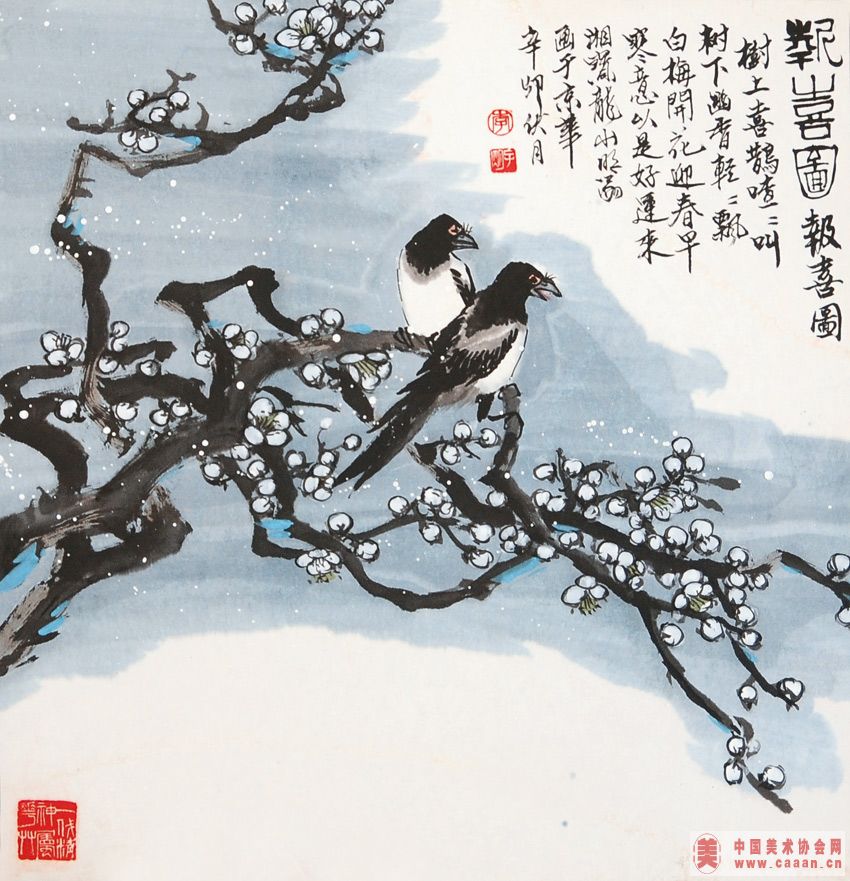 報喜圖 報喜圖
樹上喜鵲喳〻叫
树下幽香輕〻飄
白梅開花迎春早
寒意以是好運來
龍
画于京華
辛卯伏月
美 中国美术协会网
www.caaan.cn